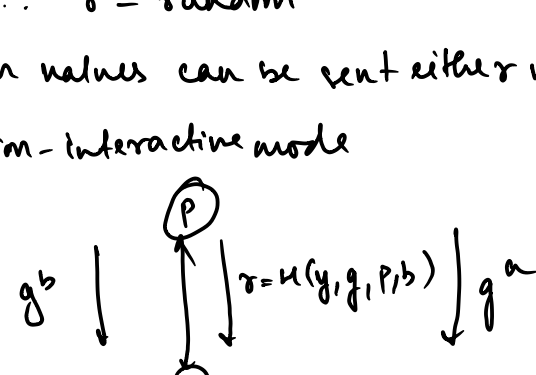 r = random
values can be sent either
interactive mode
P
g^b r=H(y,g,P,b) g^a